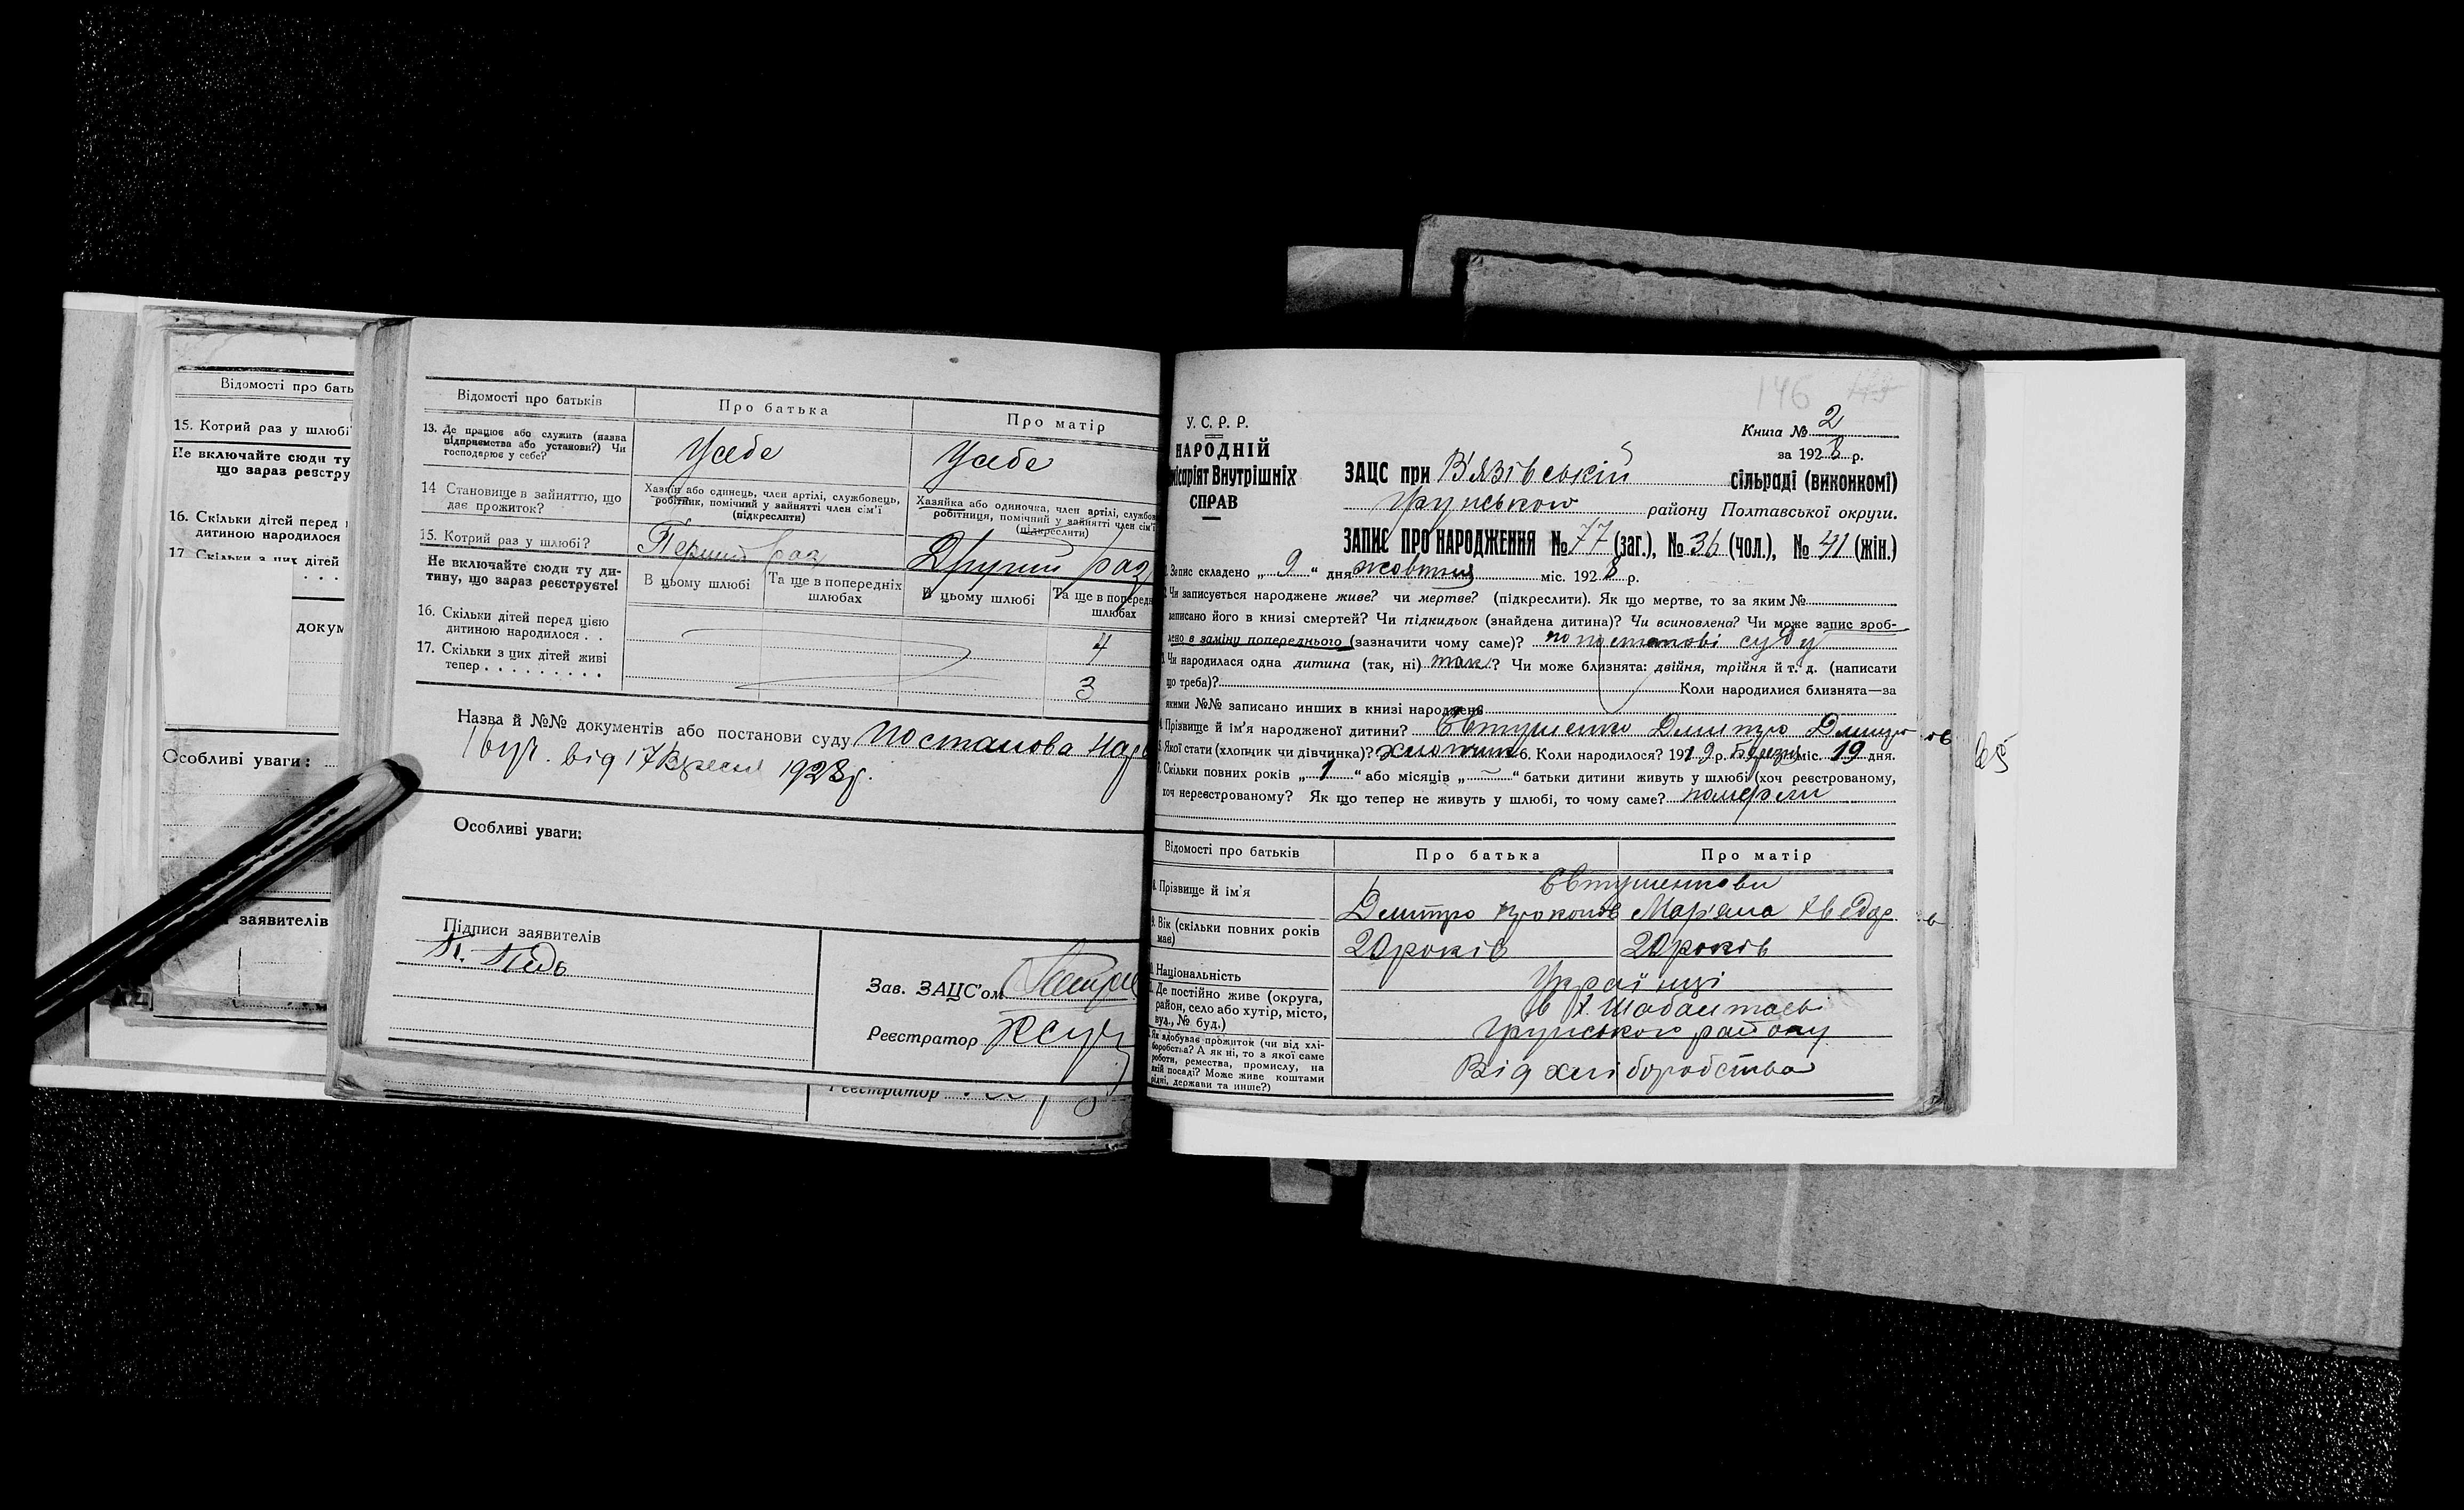 Відомості про бать
15. Котрий раз у шлюбі
Не включайте сюди ту
що зараз реєстру
16. Скільки дітей перед
дитиною народилося
17 Скільки з цих дітей
докум
Особливі уваги:
заявителів
Відомості про батьків
Про батька
Про матір
13. Де працює або служить (назва підприємства або установи?) Чи господарює у себе?
У себе
У себе
14 Становище в зайняттю, що дає прожиток?
Хазяїн або одинець, член артілі, службовець, робітник, помічний у зайнятті член сім'ї (підкреслити)
Хазяйка або одиночка, член артілі, службов
робітниця, помічний у зайнятті член сім'ї
(підкреслити)
15. Котрий раз у шлюбі?
Перший раз
Другий раз
Не включайте сюди ту дитину, що зараз реєструєте!
В цьому шлюбі
Та ще в попередніх шлюбах
В цьому шлюбі
Та ще в попередн
шлюбах
16. Скільки дітей перед цією
дитиною народилося . .
4
17. Скільки з цих дітей живі
тепер . . . . . . . . .
3
Назва й №№ документів або постанови суду постанова
від 17 Вересня 1928 р.
Особливі уваги:
Підписи заявителів
Зав. ЗАЦС'ом
Реєстратор
Реєстратор
146
У. С. Р. Р.
НАРОДНІЙ
місаріят Внутрішніх
СПРАВ
Книга № 2
за 1928 р.
ЗАЦС при В'язівській сільраді (виконкомі)
Грунського району Полтавської округи.
ЗАПИС ПРО НАРОДЖЕННЯ № 77 (заг.), № 36 (чол.), № 41 (жін.)
Запис складено „ 9 “ дня жовтня міс. 1928 р.
Чи записується народжене живе? чи мертве? (підкреслити). Як що мертве, то за яким №
записано його в книзі смертей? Чи підкидьок (знайдена дитина)? Чи всиновлена? Чи може запис зроб-
лено в заміну попереднього (зазначити чому саме)? по постанові суду
Чи народилася одна дитина (так, ні) так? Чи може близнята: двійня, трійня й т. д. (написати
що треба)? Коли народилися близнята—за
якими №№ записано инших в книзі народжень
Прізвище й ім'я народженої дитини? Євтушенко Дмитро Дмитров
Якої стати (хлопчик чи дівчинка)? хлопчик 6. Коли народилося? 1919 р. Березня міс. 19 дня.
Скільки повних років „ 1 “ або місяців „ — “ батьки дитини живуть у шлюбі (хоч реєстрованому,
хоч нереєстрованому? Як що тепер не живуть у шлюбі, то чому саме? померли
Відомості про батьків
Про батька
Про матір
Прізвище й ім'я
Євтушенкови
Дмитро Прокопов
Мар'яна Хведор
Вік (скільки повних років має)
20 років
20 років
Національність
Українці
Де постійно живе (округа, район, село або хутір, місто, вул., № буд.)
в х.
Грунського району
Як здобуває прожиток (чи від хліборобства? А як ні, то з якої саме роботи, ремества, промислу, на якій посаді? Може живе коштами рідні, держави та инше?)
Від хліборобства